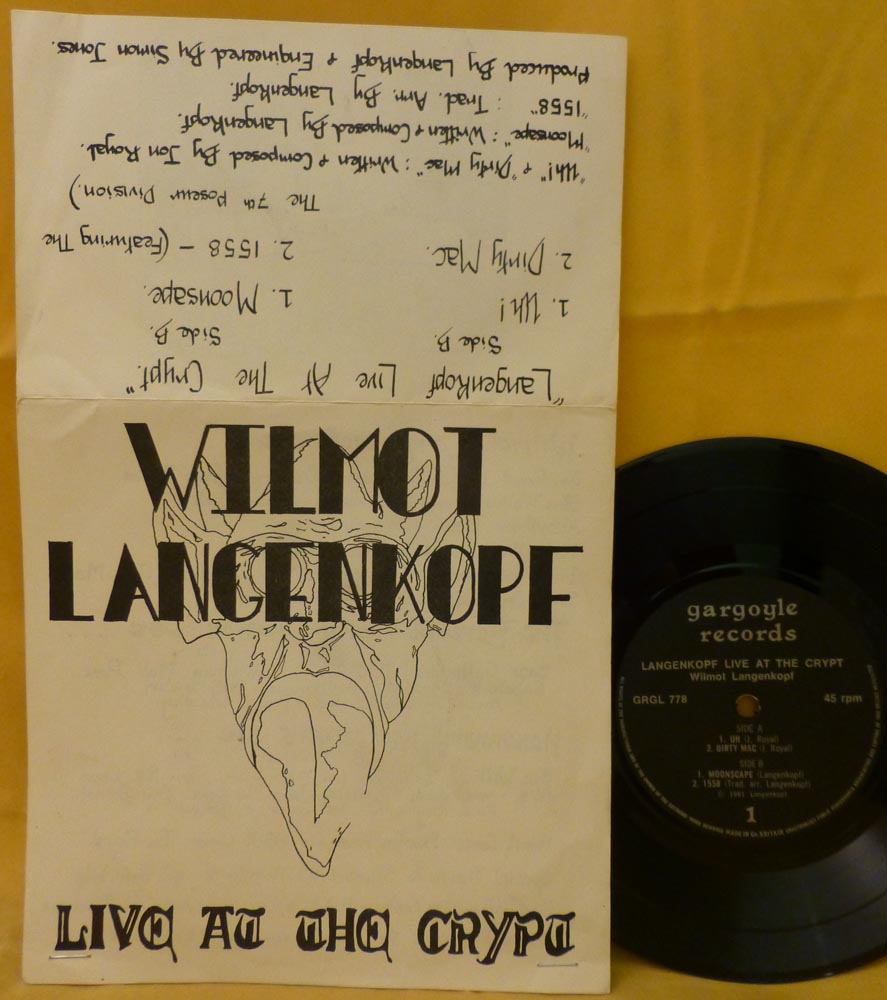 "Langenkopf Live At The Crypt."
Side B. Side B.
1. Uh! 1. Moonsape.
2. Dirty Mac. 2. 1558 – (Featuring The
The 7th Poseur Division.)
"Uh!" & "Dirty Mac": Written & Composed By Jon Royal.
"Moonsape": Written & Composed By Langenkopf.
"1558" : Trad. Arr. By Langenkopf.
Produced By Langenkopf & Engineered By Simon Jones.
WILMOT
LANGENKOPF
LIVE AT THE CRYPT
gargoyle
records
LANGENKOPF LIVE AT THE CRYPT
Wilmot Langenkopf
GRGL 778 45 rpm
SIDE A
1. UH (J. Royal)
2. DIRTY MAC (J. Royal)
SIDE B
1. MOONSCAPE (Langenkopf)
2. 1558 (Trad. arr. Langenkopf)
℗ 1981 Langenkopf
1